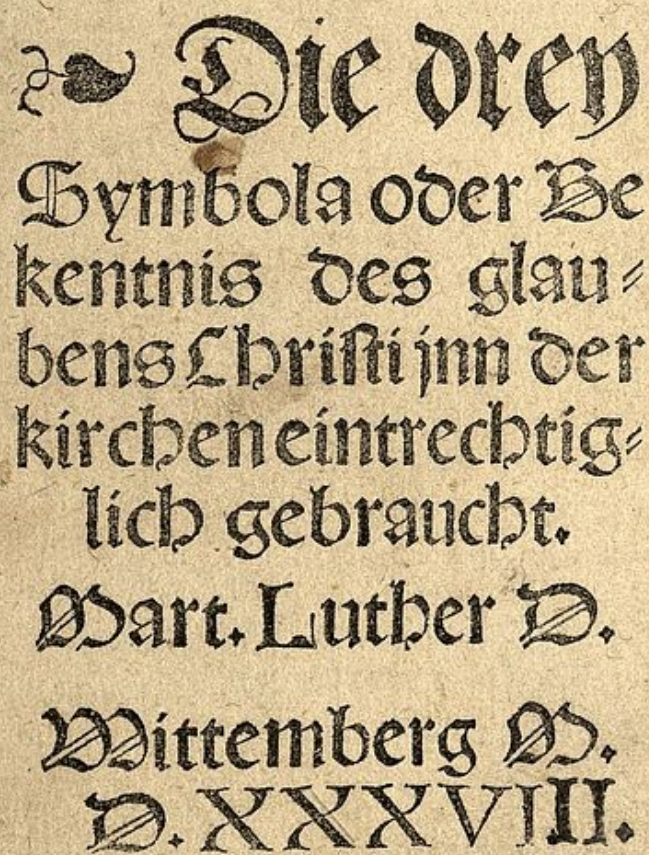 ❧ Die drey
Symbola oder Be
kentnis des glau⸗
bens Christi jnn der
kirchen eintrechtig⸗
lich gebraucht.
Mart. Luther D.
Wittemberg M.
D. XXXVIII.